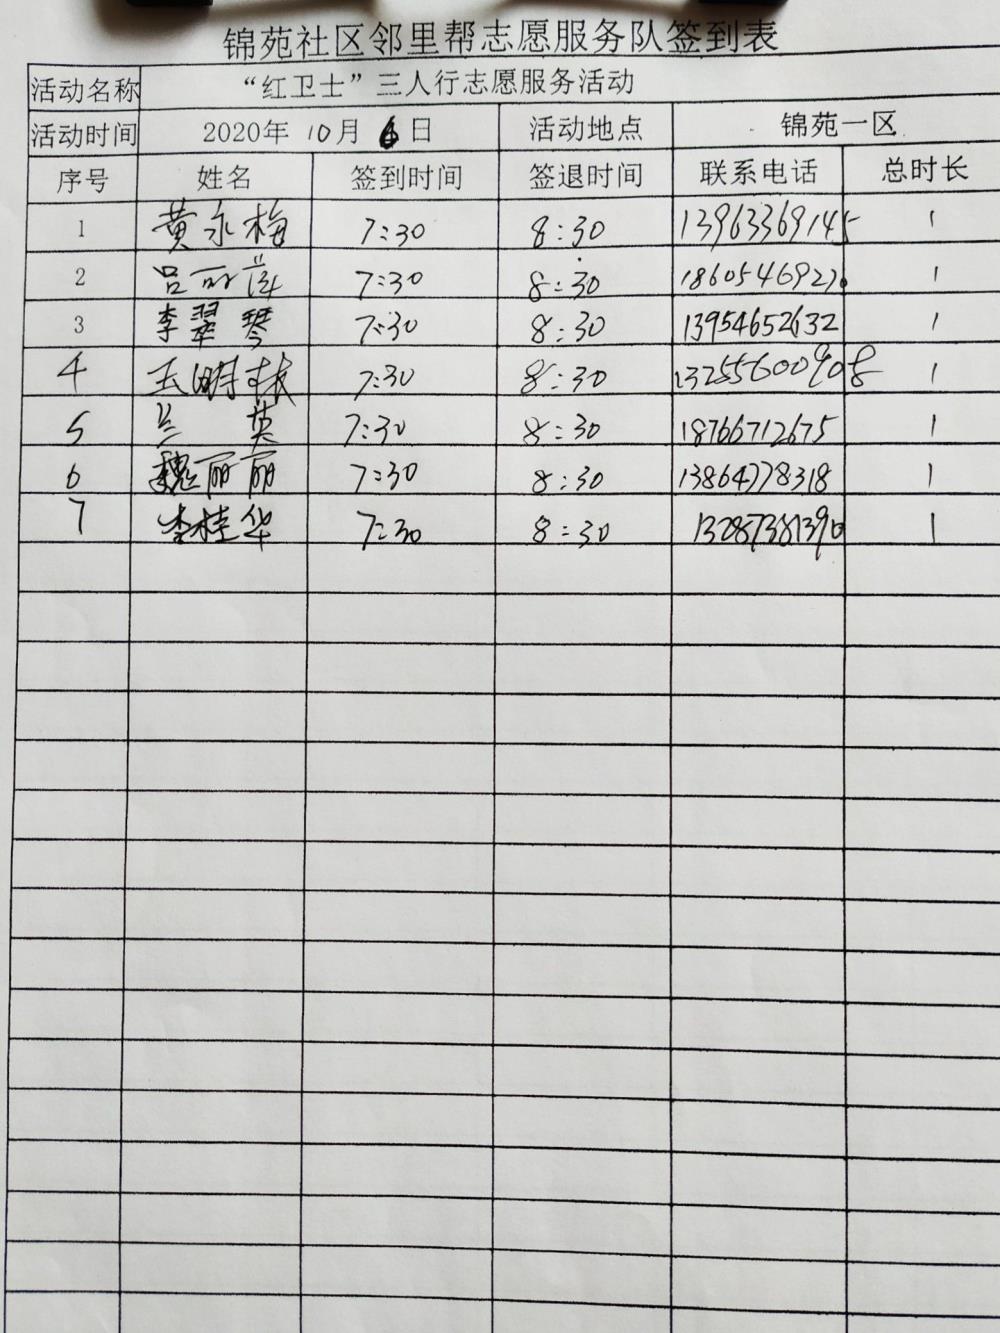 锦苑社区邻里帮志愿服务队签到表
活动名称 “红卫士”三人行志愿服务活动
活动时间 2020年 10月 6日 活动地点 锦苑一区
序号 姓名 签到时间 签退时间 联系电话 总时长
1 黄永梅 7:30 8:30 13963369145 1
2 吕丽萍 7:30 8:30 18605469270 1
3 李翠琴 7:30 8:30 13954652632 1
4 王明林 7:30 8:30 13255600908 1
5 兰英 7:30 8:30 18766712675 1
6 魏丽丽 7:30 8:30 13864778318 1
7 李桂华 7:30 8:30 13287381390 1